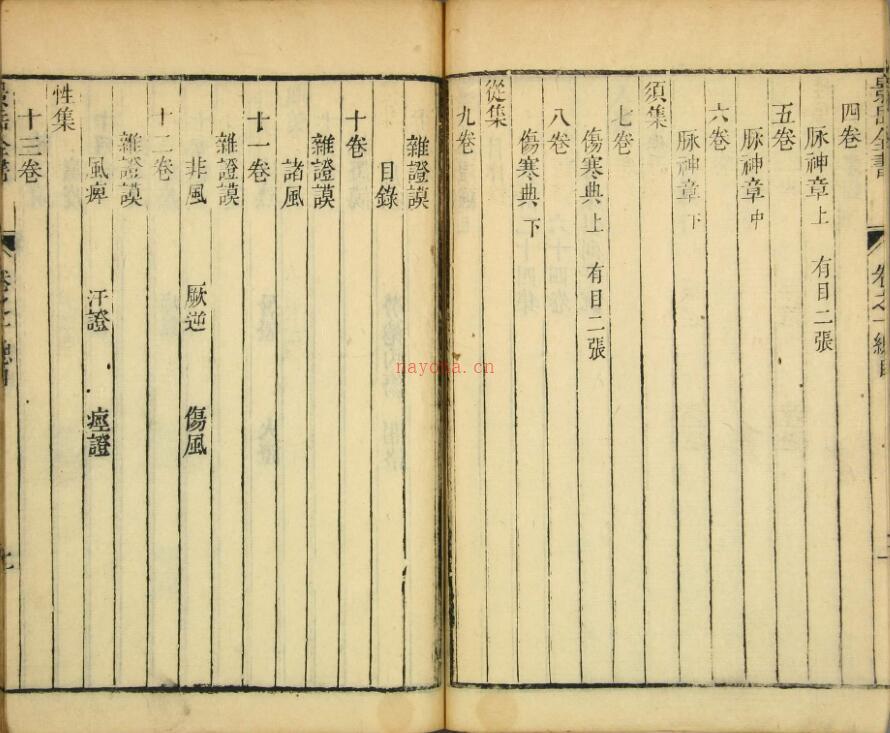 四卷
脉神章上 有目二張
五卷
脉神章中
六卷
脉神章下
須集
七卷
傷寒典上 有目二張
八卷
傷寒典下
從集
九卷
雜證謨
目錄
十卷
雜證謨
諸風
十一卷
雜證謨
非風 厥逆 傷風
十二卷
雜證謨
風痺 汗證 痙證
性集
十三卷
nayona.cn